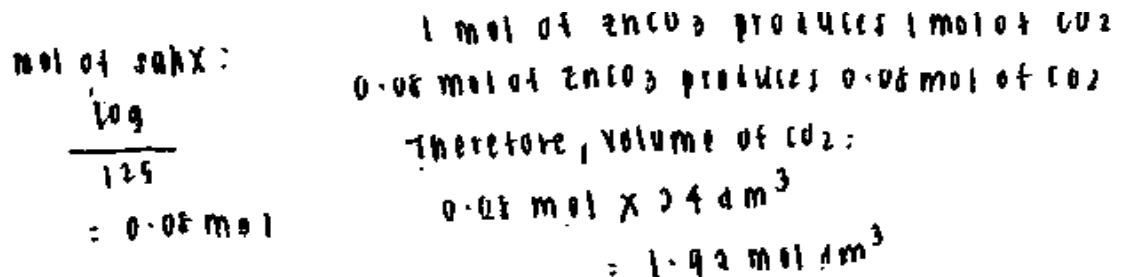 mol of salt X :
10g
125
= 0.08 mol
1 mol of ZnCO3 produces 1 mol of CO2
0.08 mol of ZnCO3 produces 0.08 mol of CO2
Therefore, volume of CO2 :
0.08 mol X 24 dm³
= 1.92 mol dm³